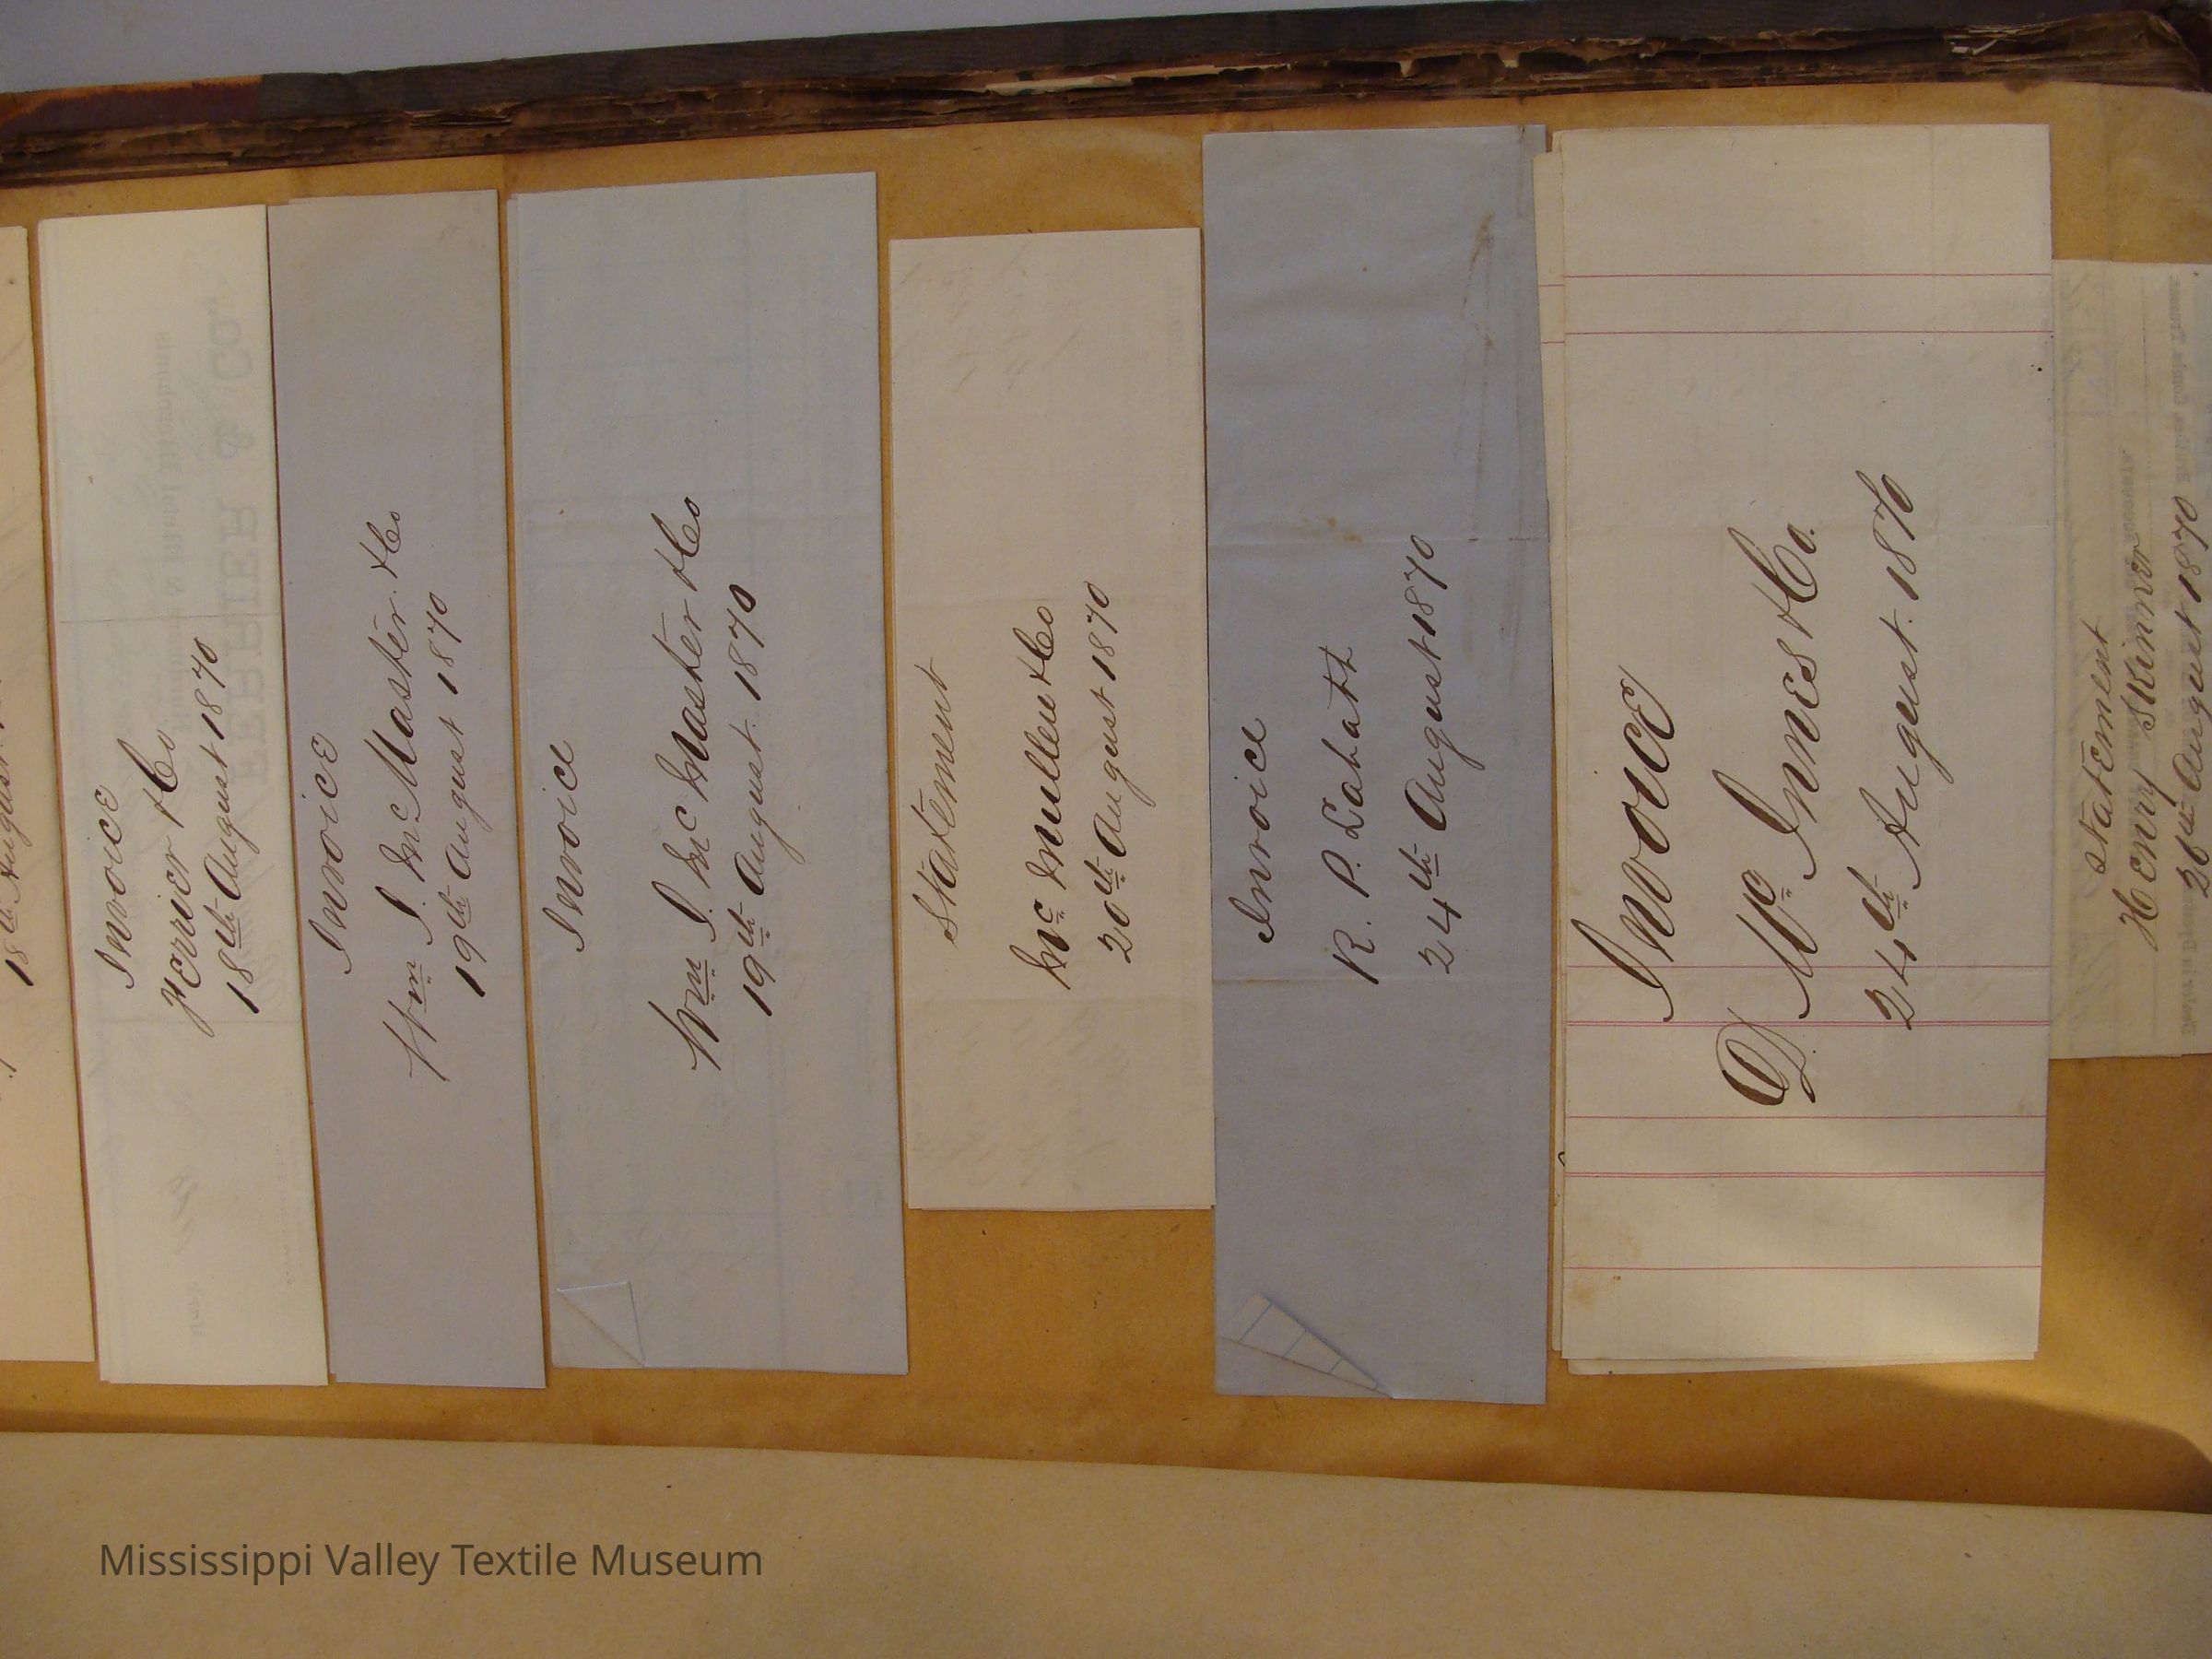 18th August
Invoice
Ferrier & Co
18th August 1870
FERRIER & CO.
Invoice
Wm J. McMaster & Co
19th August 1870
Invoice
Wm J. McMaster & Co
19th August. 1870
Statement
McMullen & Co
20th August 1870
Invoice
R. P. Labatt
24th August 1870
Invoice
D. McInnes & Co.
24th August. 1870
Statement
Henry Skinner
26th August 1870
Mississippi Valley Textile Museum